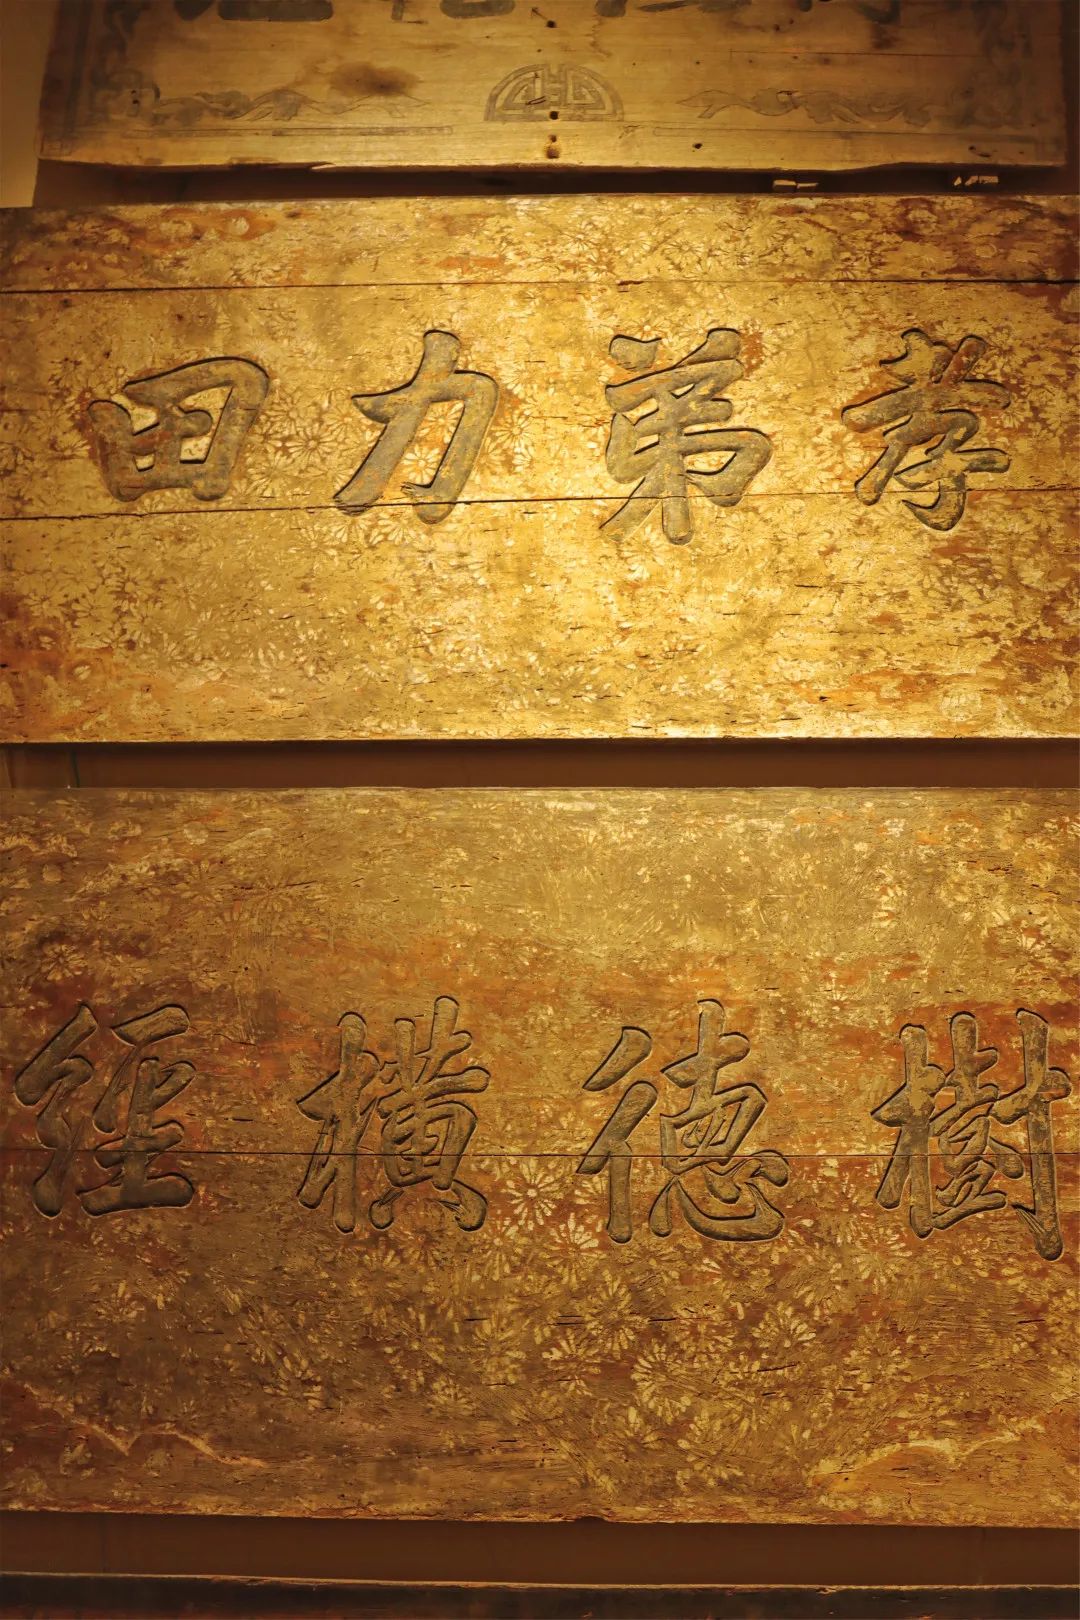 孝弟力田
樹德橫經